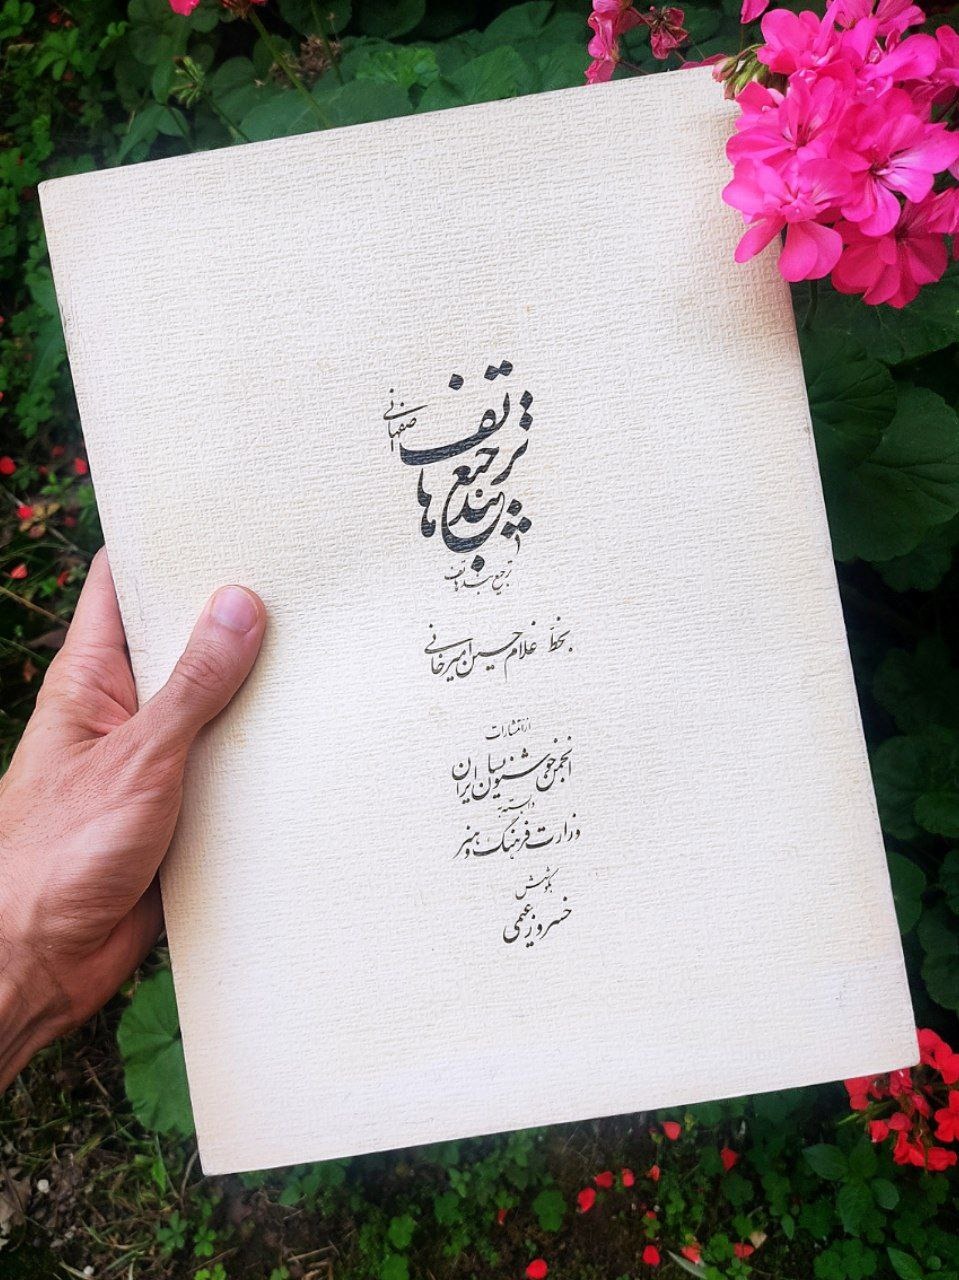 ترجیع بند هاتف اصفهانی
ترجیع بند هاتف
بخطّ غلامحسین امیرخانی
از انتشارات
انجمن خوشنویسان ایران
وابسته به
وزارت فرهنگ و هنر
بکوشش
خسرو زعیمی